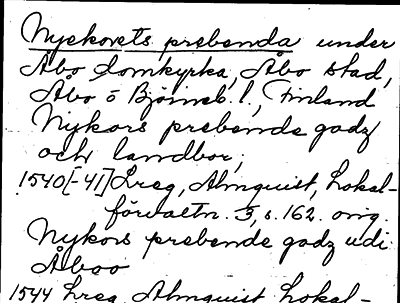 Nyekorsts prebenda under
Åbo domkyrka, Åbo stad,
Åbo o Björneb. l., Finland
Nykors prebende godz
och landbor,
1540[-41] Lreg, Almquist, Lokal-
förvaltn. 3, s. 162. orig.
Nykors prebende godz udi
Åboo
1544 Lreg Almquist Lokal-